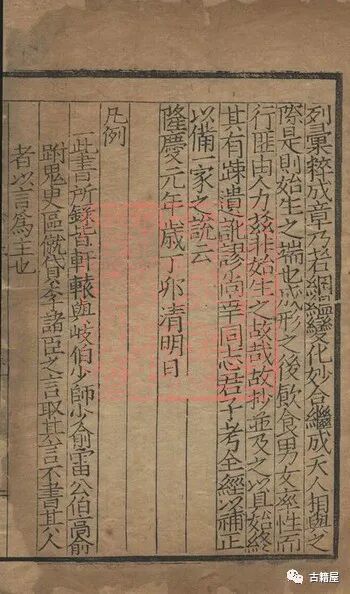 列彚粹成章乃若絪縕變化妙合繼成天人相與之
際是則始生之端也成形之後飲食男女率性而
行匪由人力茲非始生之故哉故抄並及之以具始終
其有踈遺訛謬尚幸同志君子考全經以補正
以備一家之說云
隆慶元年歲丁卯清明日
凡例
一此書所錄皆軒轅與岐伯少師少俞雷公伯高俞
跗鬼史區僦貸季諸臣之言取其言不書其人
者以言爲主也
古籍屋